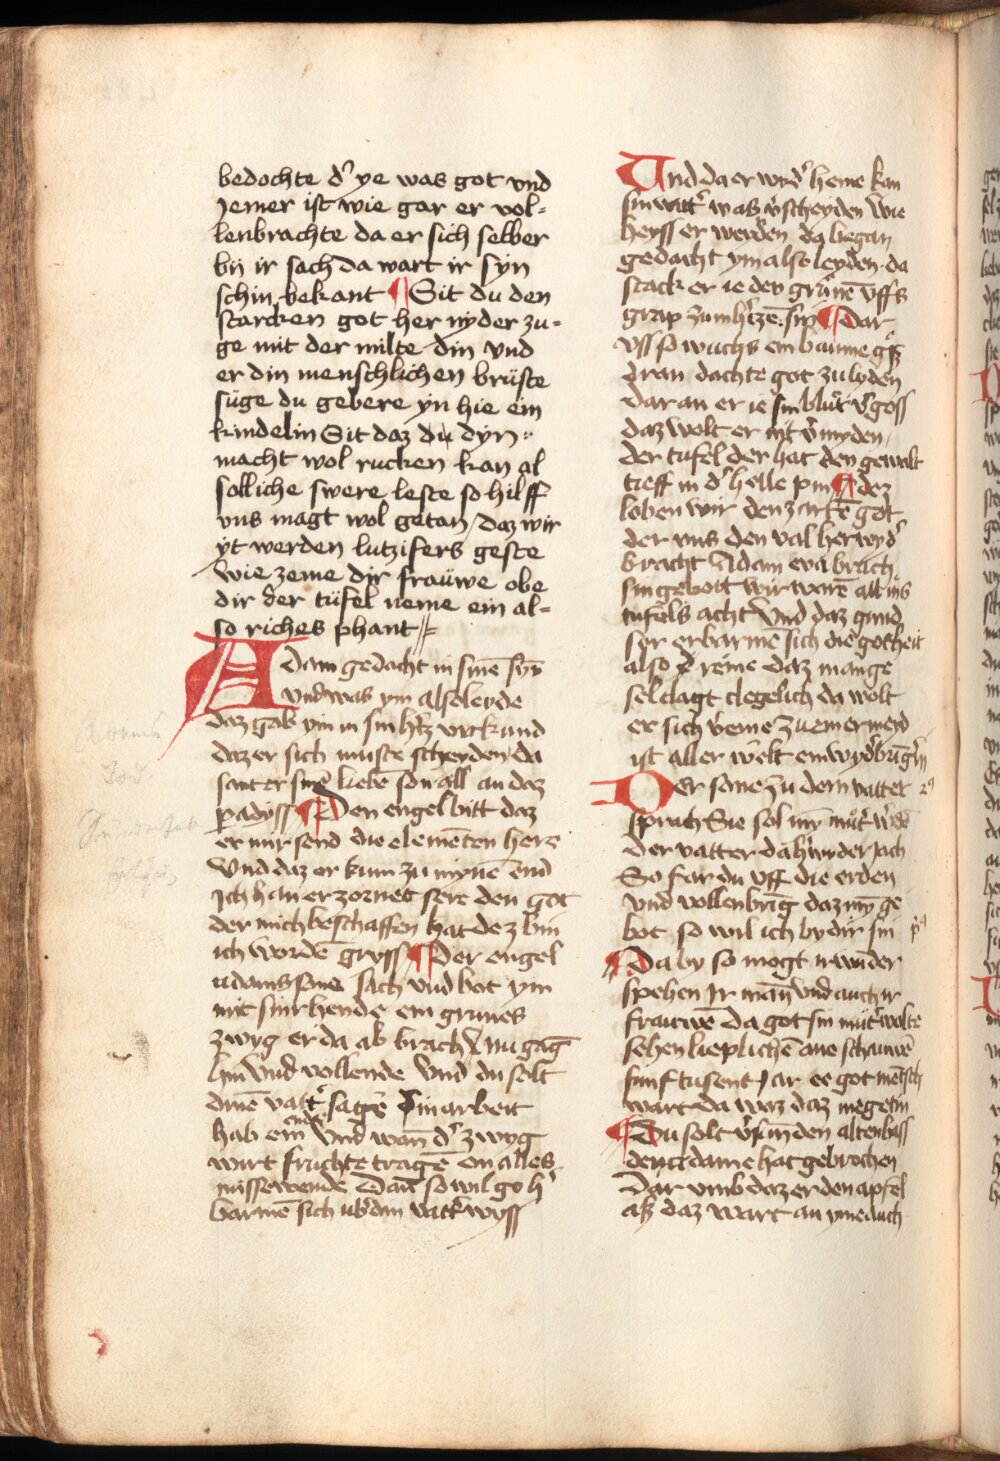 bedochte d' ye was got vnd
Jemer ist wie gar er vol-
lenbrachte da er sich selber
bij ir sach da wart ir syn
schin bekant ¶ Sit du den
starcken got her nyder zu-
ge mit der milte din vnd
er din menschlichen brüste
süge du gebere yn hie ein
kindelin Sit daz du dyn
macht wol rucken kan al
solliche swere leste so hilff
vns magt wol getan / daz wir
yt werden lutzifers geste
wie zeme dir frauwe obe
dir der tüfel neme ein al-
so riches phant
Adam gedacht in sinē syn
vnd was ym also leyde
daz gab ym in sin h'tz vrkund
daz er sich muste scheyden da
sant er sinē liebē son all an daz
padyss ¶ Den engel bitt daz
er mir send die elementen here
Vnd daz er kum zu mynē end
Ich han erzornet sere den got
der mich beschaffen hat dez bin
ich wordē gryss ¶ Der engel
adams sone sach vnd bot ym
mit sinr hende ein grunes
zwyg er da ab brach Nu gāg
hin vnd vollende Vnd du solt
dinē vatt' sagē Sin arbeit
hab ein ende Vnd wan d' zwyg
wirt fruchte tragē on alles
missewende Dan so wil go h'
barmē sich ub' din vatt' wyss
Und da er wyd' heme kan
sin vatt' waz v'scheyden Wie
heyss er werden da began
gedacht ym also leyden da
stack er ie den grünē vff s
grap zum h'tzē sin ¶ Dar
vss so wuchs ein baume g'sz
dran dachte got zu lyden
daran er ie sin blut v'goss
daz wolt er nit v'myden
der tufel der hat den gewalt
treff in d' helle pin ¶ dez
loben wir den zartē got
der vns den val herwyd'
bracht Adam eva brach
sin gebott wir warē all ins
tufels acht Vnd daz gund
ser erbarme sich die gotheit
also d' reme daz mange
sel clagt clegelich da wolt
er sich v'eine zu emer meid
ist aller welt ein wyd'bring'in
Der sone zu dem vatter
sprach Sie sol my mut' w'dē
Der vatter da h'wider jach
So far du vff die erden
vnd vollenbrīg daz my ge
bot so wil ich by dir sin
¶ Da by so mogt ir wunder
spehen Ir man vnd auch ir
frauwē Da got sin mut' wolte
sehen lieplichē ane schauwē
funf tusent jar ee got mensch
wart da waz daz megetin
¶ Du solt v'kunden alten hass
den adame hat gebrochen
Dar vmb daz er den apfel
asz daz wart an yme auch